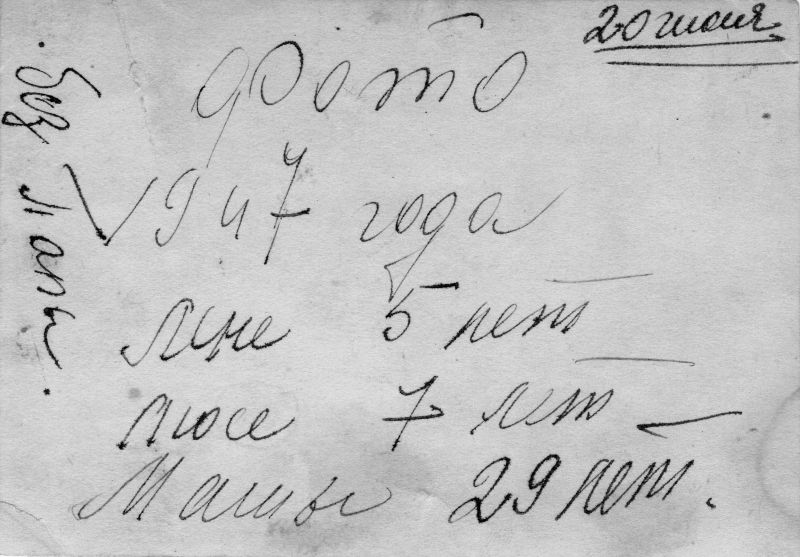 20 июля
Фото
1947 года
Лине 5 лет
Люсе 7 лет
Мамы 29 лет.
Без Папы.